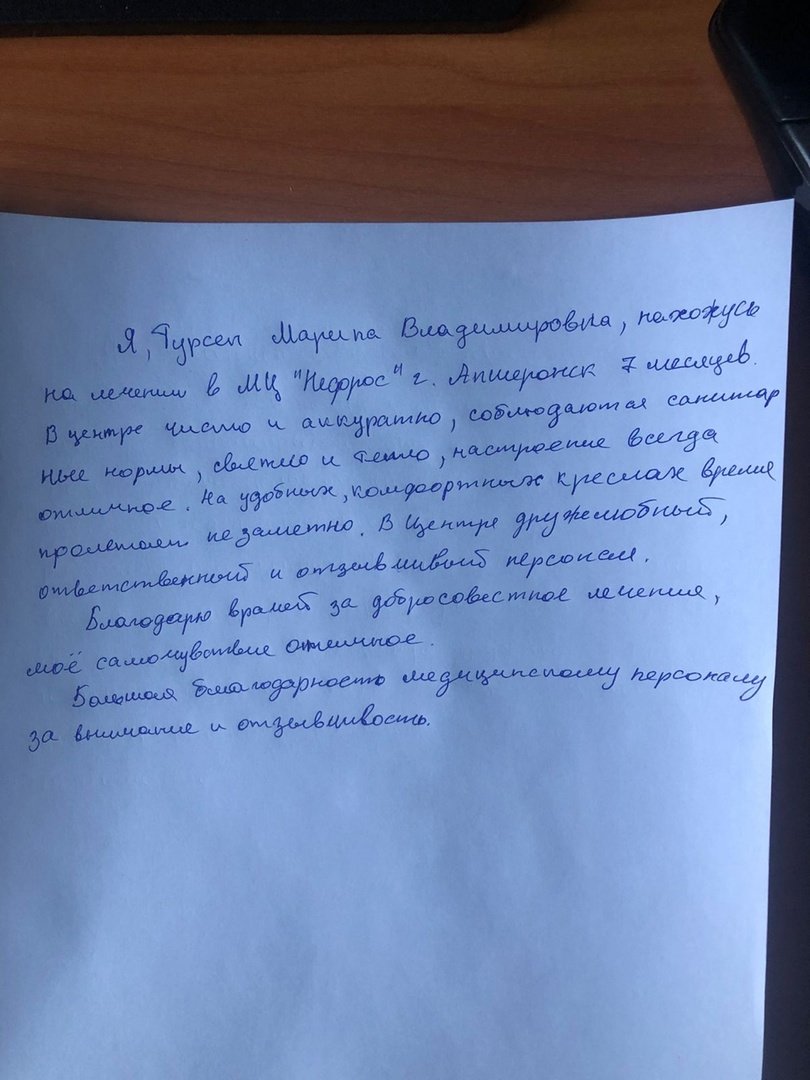 Я, Гурсен Марина Владимировна, нахожусь
на лечении в МЦ "Нефрос" г. Апшеронск 7 месяцев.
В центре чисто и аккуратно, соблюдаются санитар
ные нормы, светло и тепло, настроение всегда
отличное. На удобных, комфортных креслах время
пролетает незаметно. В Центре дружелюбный,
ответственный и отзывчивый персонал.
Благодарю врачей за добросовестное лечение,
моё самочувствие отличное.
Большая благодарность медицинскому персоналу
за внимание и отзывчивость.